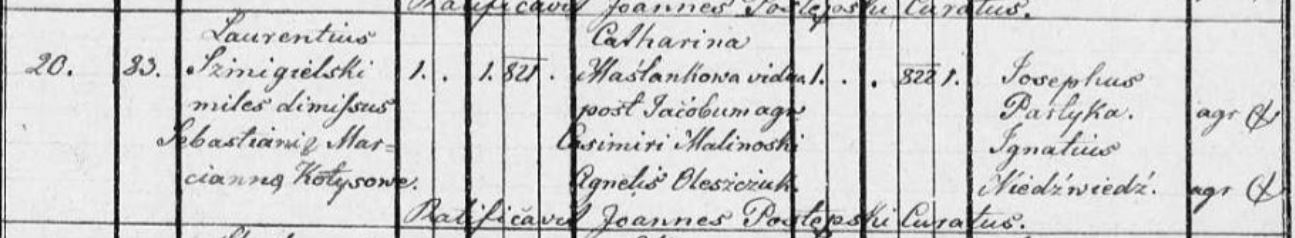 Ratificavit Joannes Postępski Curatus.
Laurentius Catharina
20. 83. Szmigielski 1. . 1. 821 . Maślankowa vidua 1. . . 822 1. Josephus
miles dimissus post Jacobum agr Parlyka. agr
Sebastiani & Mar= Casimiri Malinoski Ignatius
cianną Kotysowe. Agnelis Oleszczuk. Niedźwiedź. agr
Ratificavit Joannes Postępski Curatus.